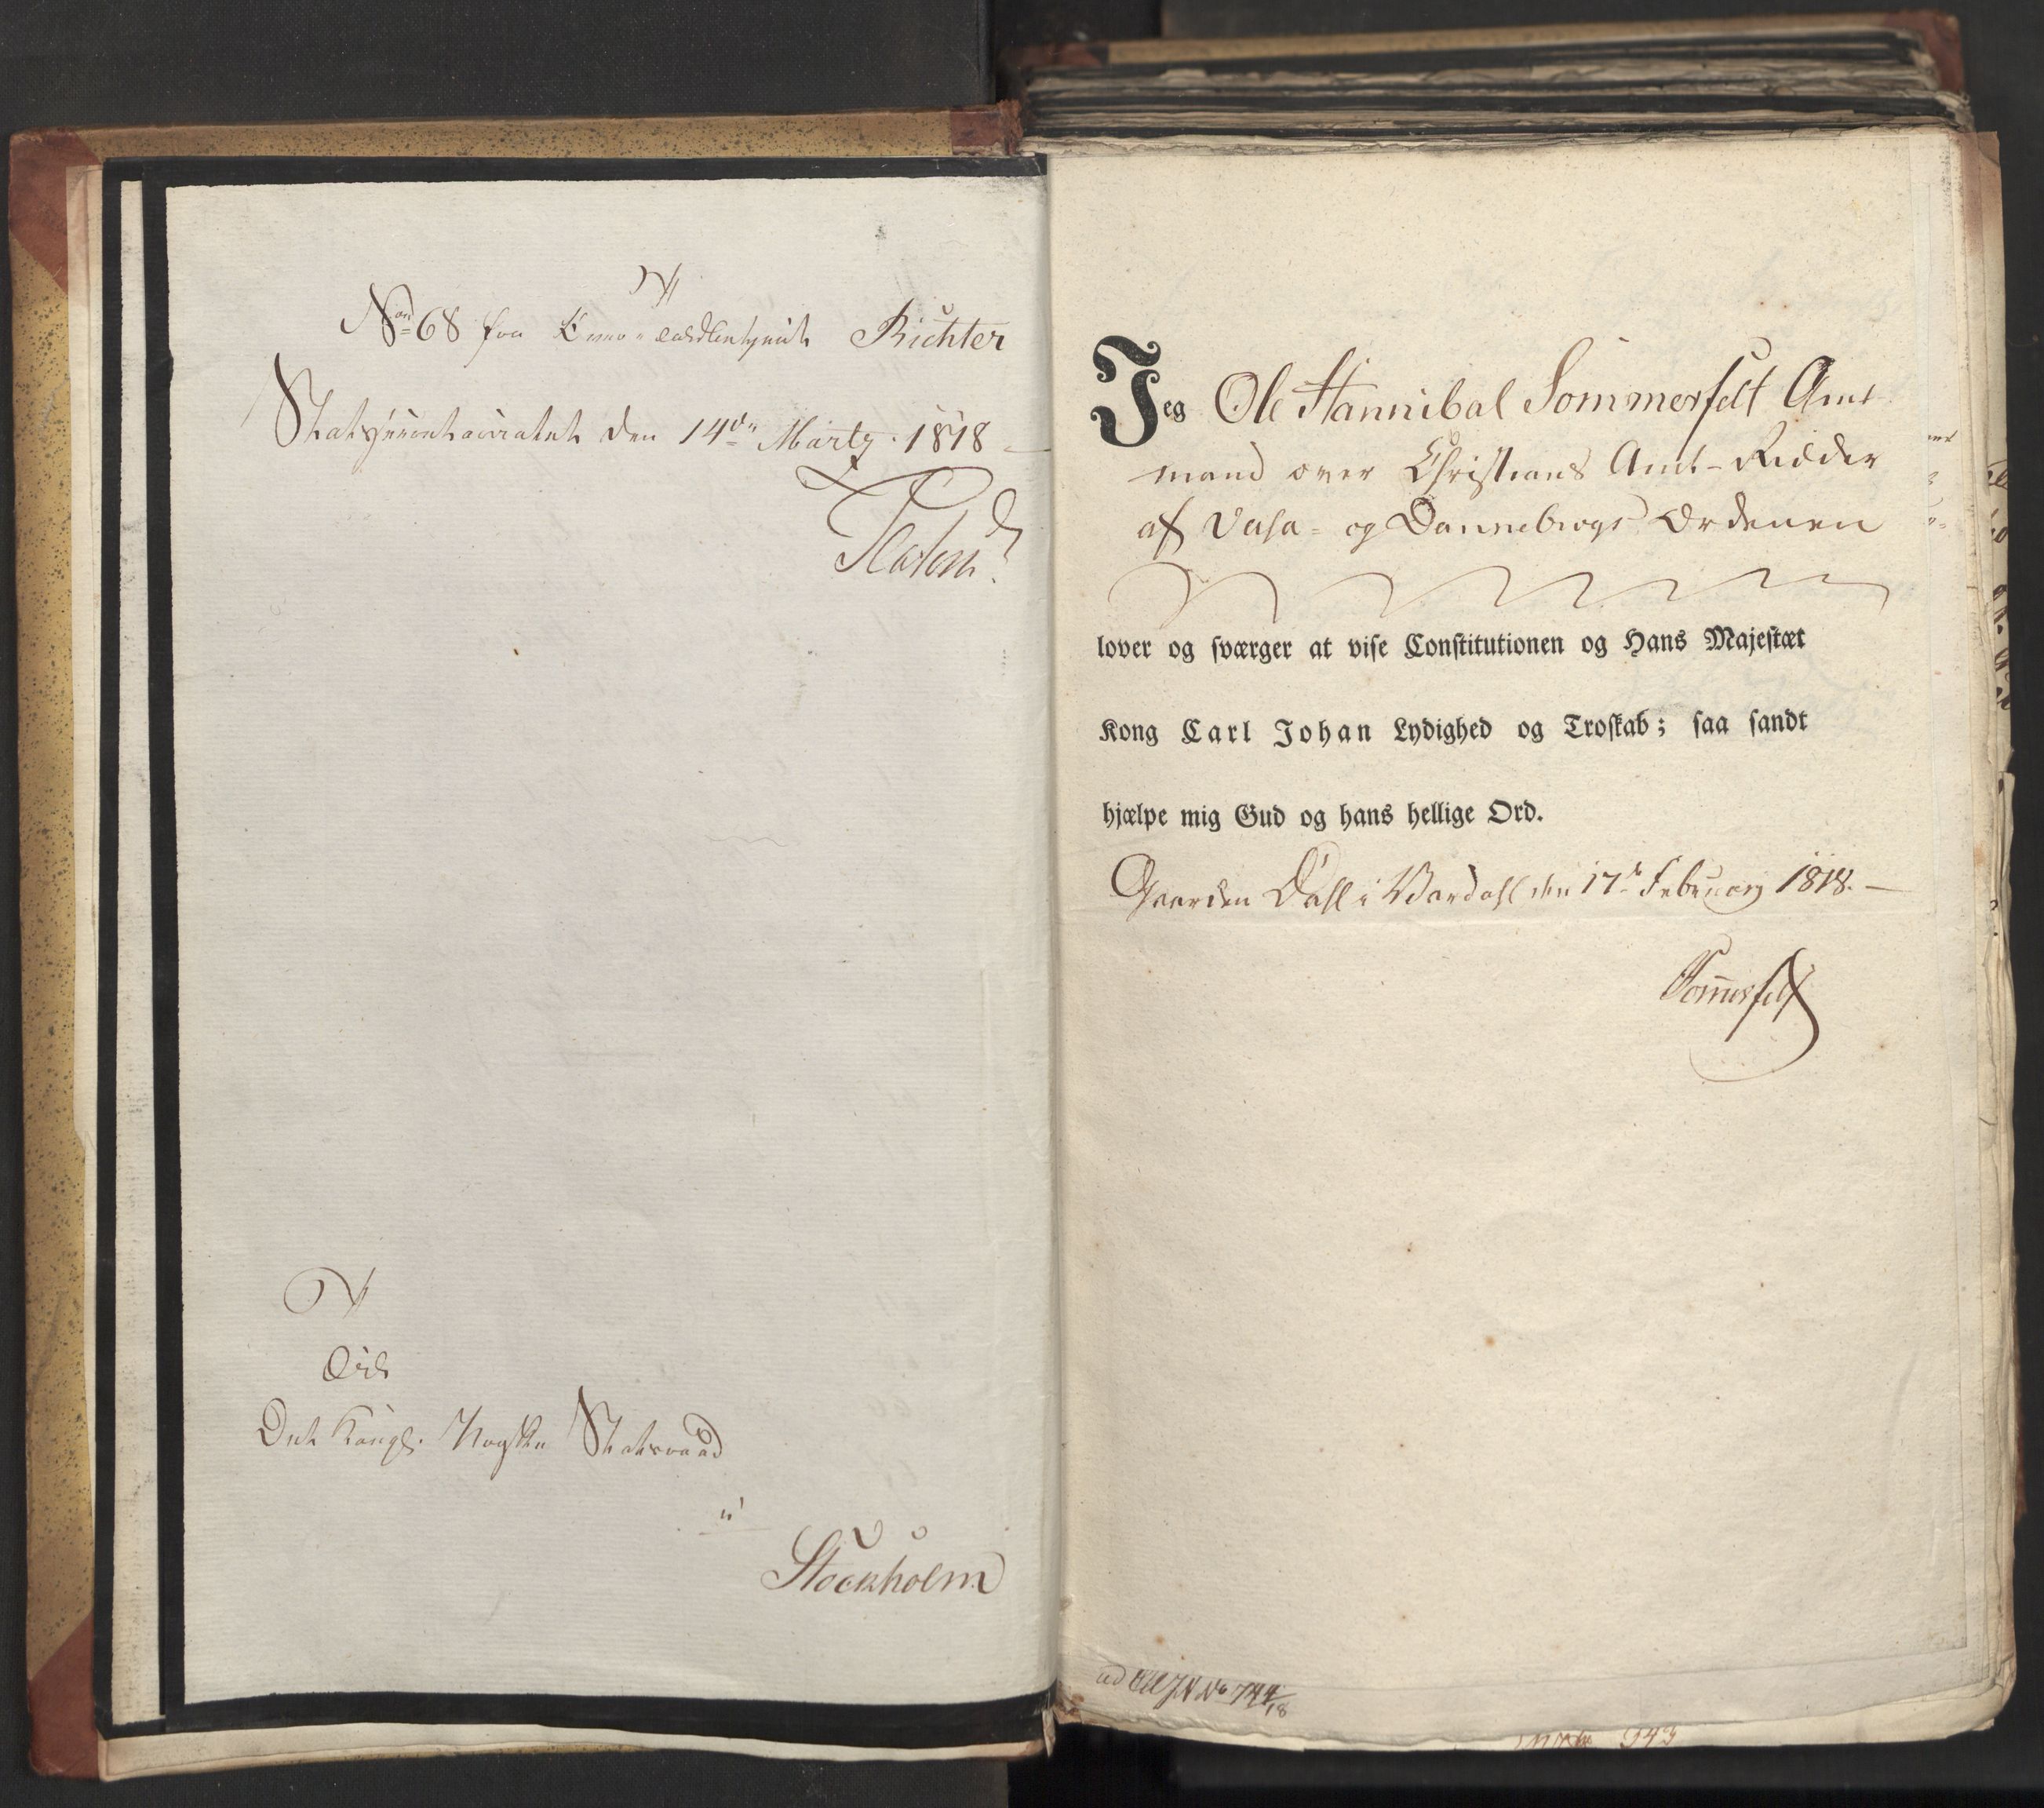 No 68 fra Richter
Statssecretariatet den 14de Marty 1818
Til
Det Kongl. Norske Statsraad
i
Stockholm
Jeg Ole Hannibal Sommerfelt Amt-
mand over Christians Amt - Ridder
af Vasa- og Dannebrogs Ordenen
lover og sværger at vise Constitutionen og Hans Majestæt
Kong Carl Johan Lydighed og Troskab; saa sandt
hjælpe mig Gud og hans hellige Ord.
Gaarden Dahl i Vardahl den 17de February 1818. —
Sommerfelt
ad No 744/18